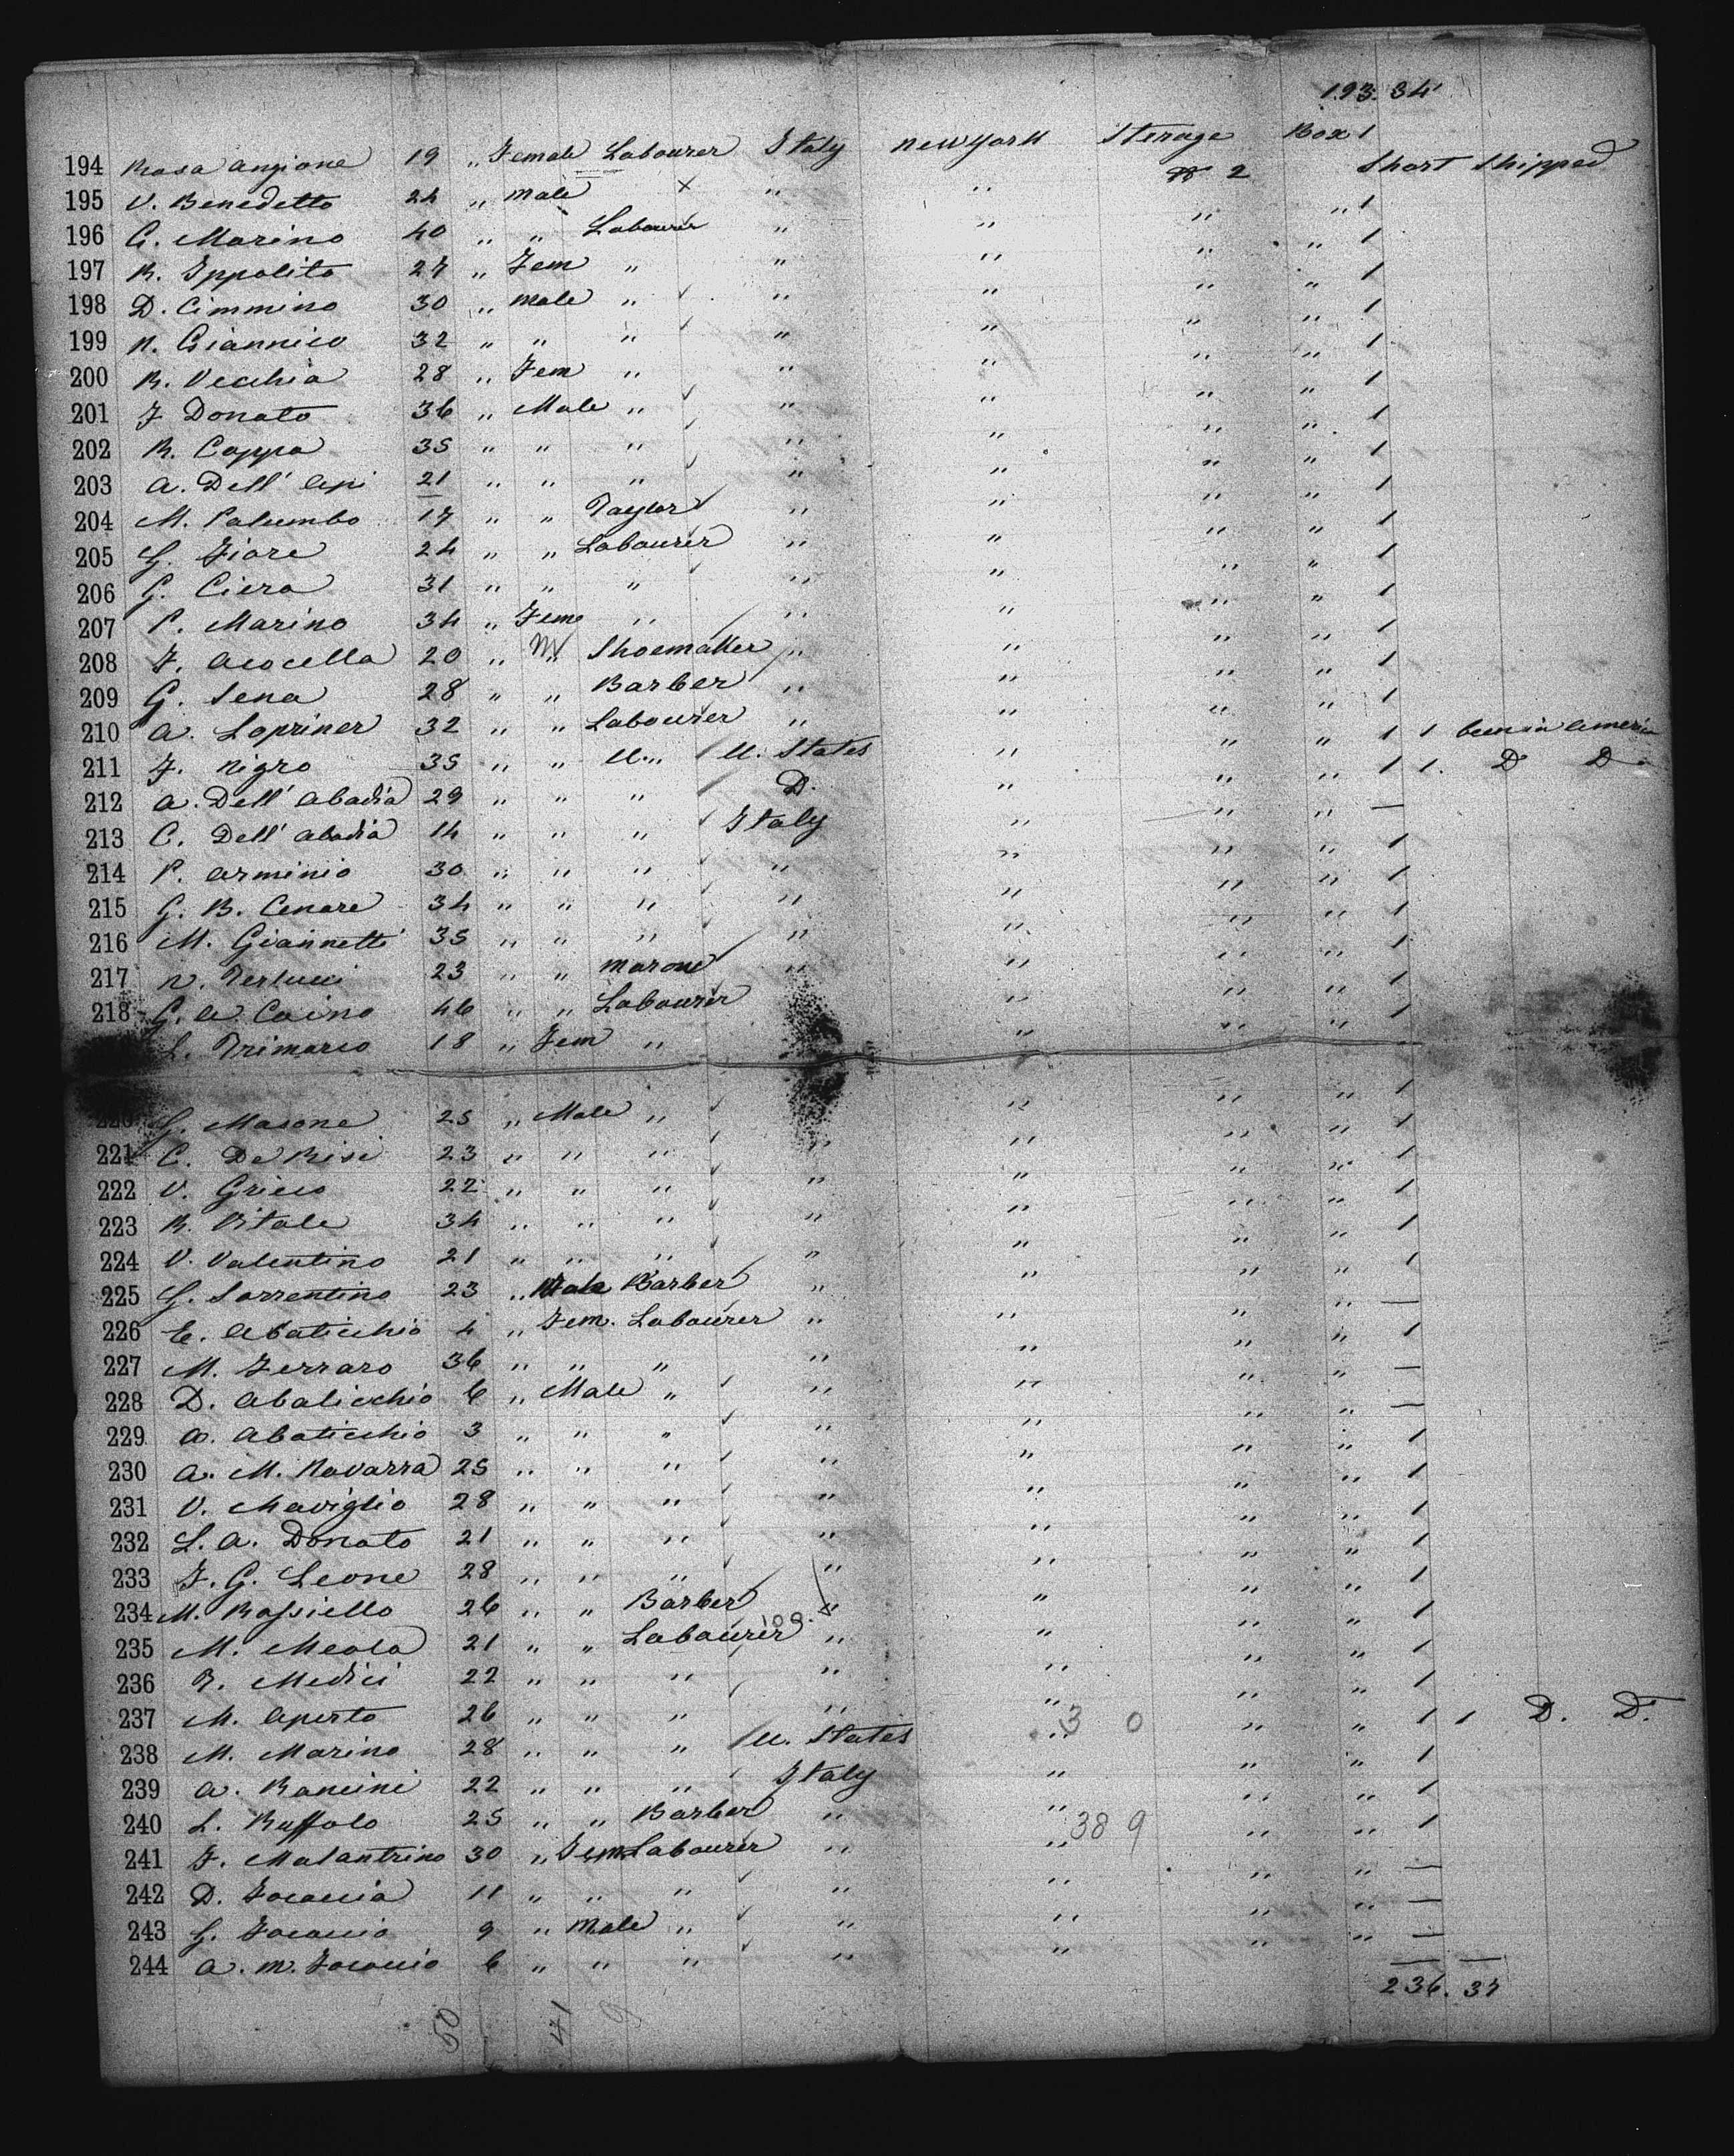 193. 34
194 Rosa Angione 19 " Female Labourer Italy New York Sterage Box 1
195 V. Benedetto 24 " Male × " " 2 Short Shipped
196 G. Marino 40 " " Labourer " " " " 1
197 R. Ippolito 27 " Fem " " " " " 1
198 D. Cimmino 30 " Male " " " " " 1
199 N. Giannico 32 " " " " " " " 1
200 R. Vecchia 28 " Fem " " " " " 1
201 F Donato 36 " Male " " " " " 1
202 R. Coppa 35 " " " " " " " 1
203 A. Dell' Api 21 " " " " " " " 1
204 M. Palumbo 17 " " Taylor " " " " 1
205 G. Fiore 24 " " Labourer " " " " 1
206 G. Ciera 31 " " " " " " " 1
207 P. Marino 34 " Fem " " " " " 1
208 F. Acocella 20 " M " Shoemaker " " " " 1
209 G. Sena 28 " " Barber " " " " 1
210 A. Lopriner 32 " " Labourer " " " " 1
211 F. Nigro 35 " " " U. States " " " 1 1 been in America
212 A. Dell' Abadia 29 " " " D. " " " 1 1. D D
213 C. Dell' Abadia 14 " " " Italy " " " —
214 P. Arminio 30 " " " " " " " 1
215 G. B. Cenare 34 " " " " " " " 1
216 M. Giannetti 35 " " " " " " " 1
217 N. Terlucci 23 " " Marone " " " " 1
218 G. A Caino 46 " " Labourer " " " " 1
L. Trimarco 18 " Fem " " " " 1
220 G. Masone 25 " Male " " " " 1
221 C. De Risi 23 " " " " " " " 1
222 V. Grieco 22 " " " " " " " 1
223 R. Vitale 34 " " " " " " " 1
224 V. Valentino 21 " " " " " " " 1
225 G. Sorrentino 23 " Male Barber " " " " 1
226 E. Abaticchio 4 " Fem. Labourer " " " " —
227 M. Ferraro 36 " " " " " " " 1
228 D. Abaticchio 6 " Male " " " " " —
229 A. Abaticchio 3 " " " " " " " —
230 A. M. Navarra 25 " " " " " " " 1
231 V. Maviglio 28 " " " " " " " 1
232 L. A. Donato 21 " " " " " " " 1
233 F. G. Leone 28 " " " " " " " 1
234 M. Rossiello 26 " " Barber " " " " 1
235 M. Meola 21 " " Labourer " " " " 1
236 R. Medici 22 " " " " " " " 1
237 M. Aperto 26 " " " " " " " 1
238 M. Marino 28 " " " U. States " 3 0 " " 1 1 D. D.
239 A. Rancini 22 " " " Italy " " " 1
240 L. Ruffolo 25 " " Barber " " " " 1
241 F. Malantrino 30 " Fem Labourer " " 38 9 " " 1
242 D. Focaccia 11 " " " " " " " —
243 G. Focaccio 9 " Male " " " " " —
244 A. M. Focaccio 6 " " " " " " " —
236. 37
50 41 9